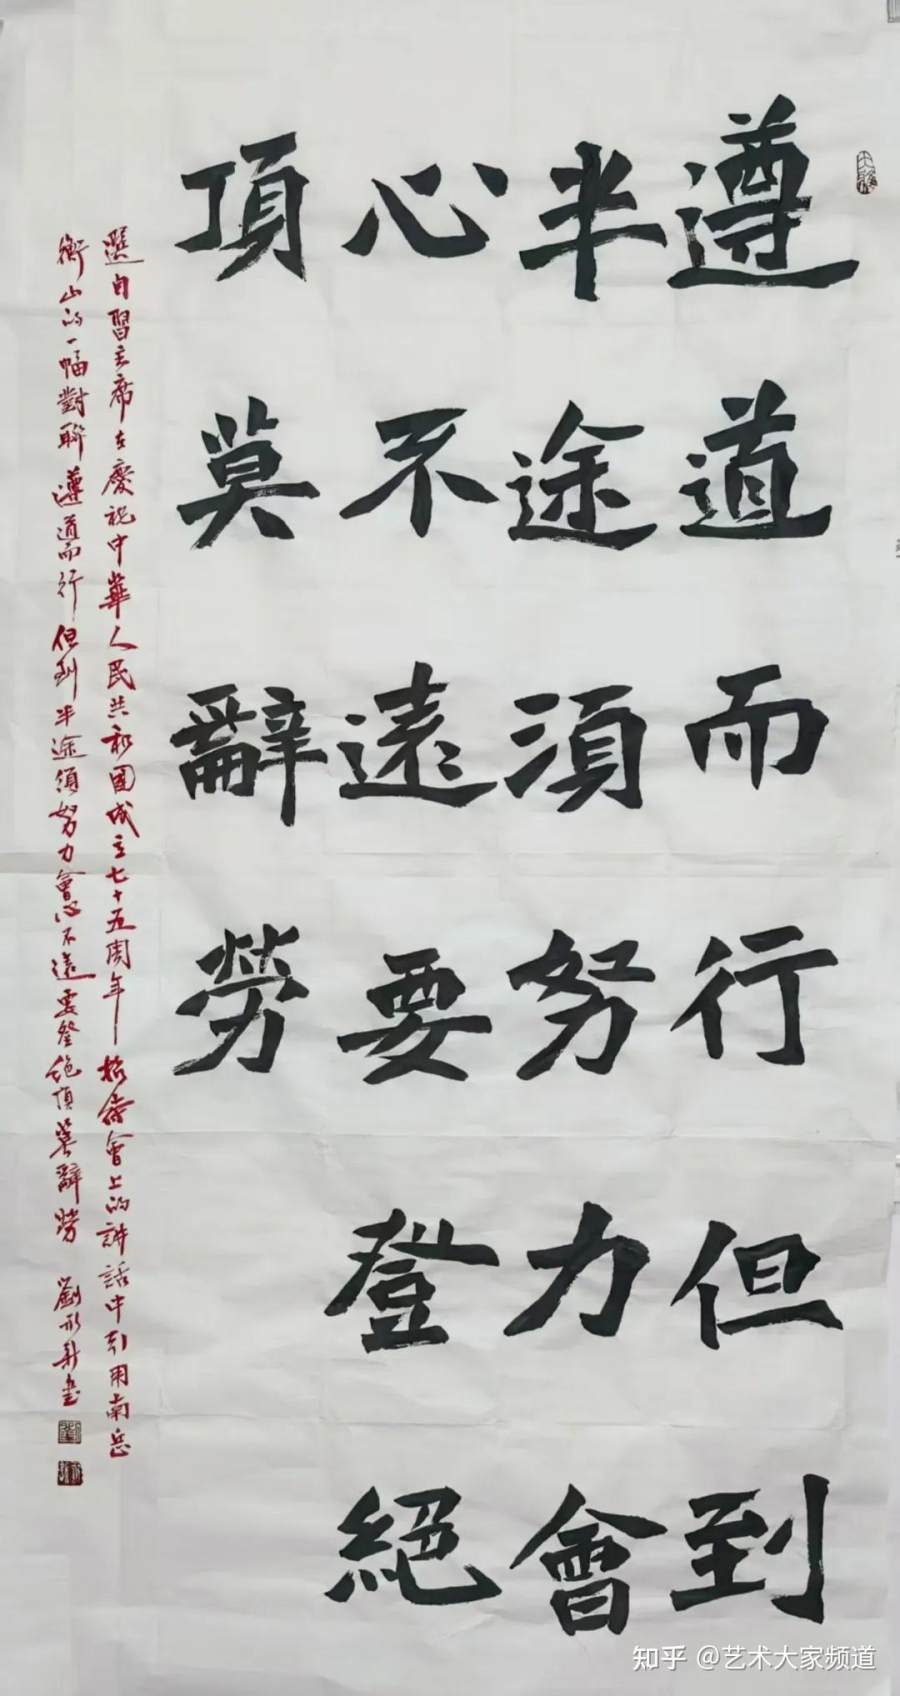 遵道而行但到
半途須努力會
心不遠要登絕
頂莫辭勞
選自習主席在慶祝中華人民共和國成立七十五周年招待會上的講話中引用南岳
衡山的一幅對聯遵道而行但到半途須努力會心不遠要登絕頂莫辭勞 劉
知乎 @艺术大家频道